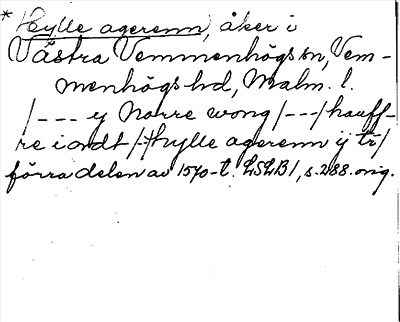 * Hylle agerenn, åker i
Västra Vemmenhögs sn, Vem-
menhögs hd, Malm. l.
/--- y Norre wong /---/ hauff-
re i ordt /--/ hylle agerenn ij tr/
förra delen av 1570-t. LSLB1, s. 288. orig.